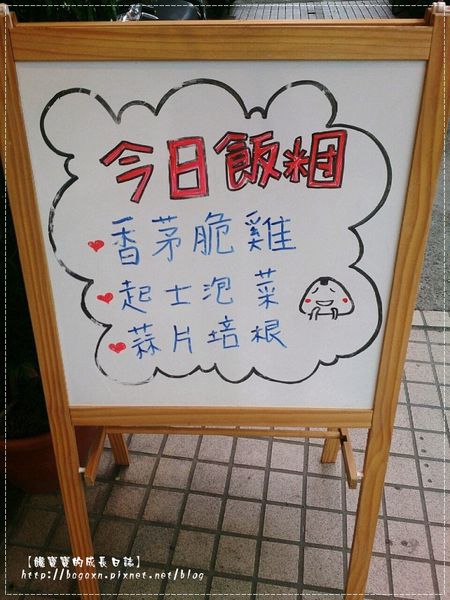 今日飯糰
香茅脆雞
起士泡菜
蒜片培根
【饅寶寶的成長日誌】
http://bogoxn.pixnet.net/blog